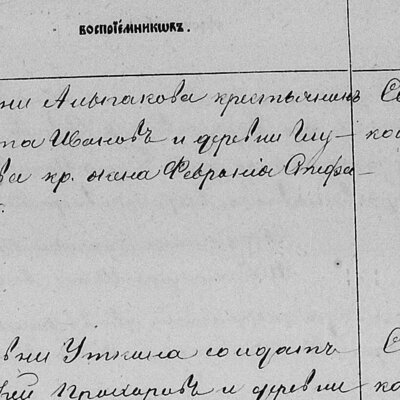 воспріемниковъ.
ни Алыпакова крестьянинъ
та Ивановъ и деревни Глу-
ва кр. жена Февронія Стефа-
вни Уткина солдатъ
ей Прохоровъ и деревни